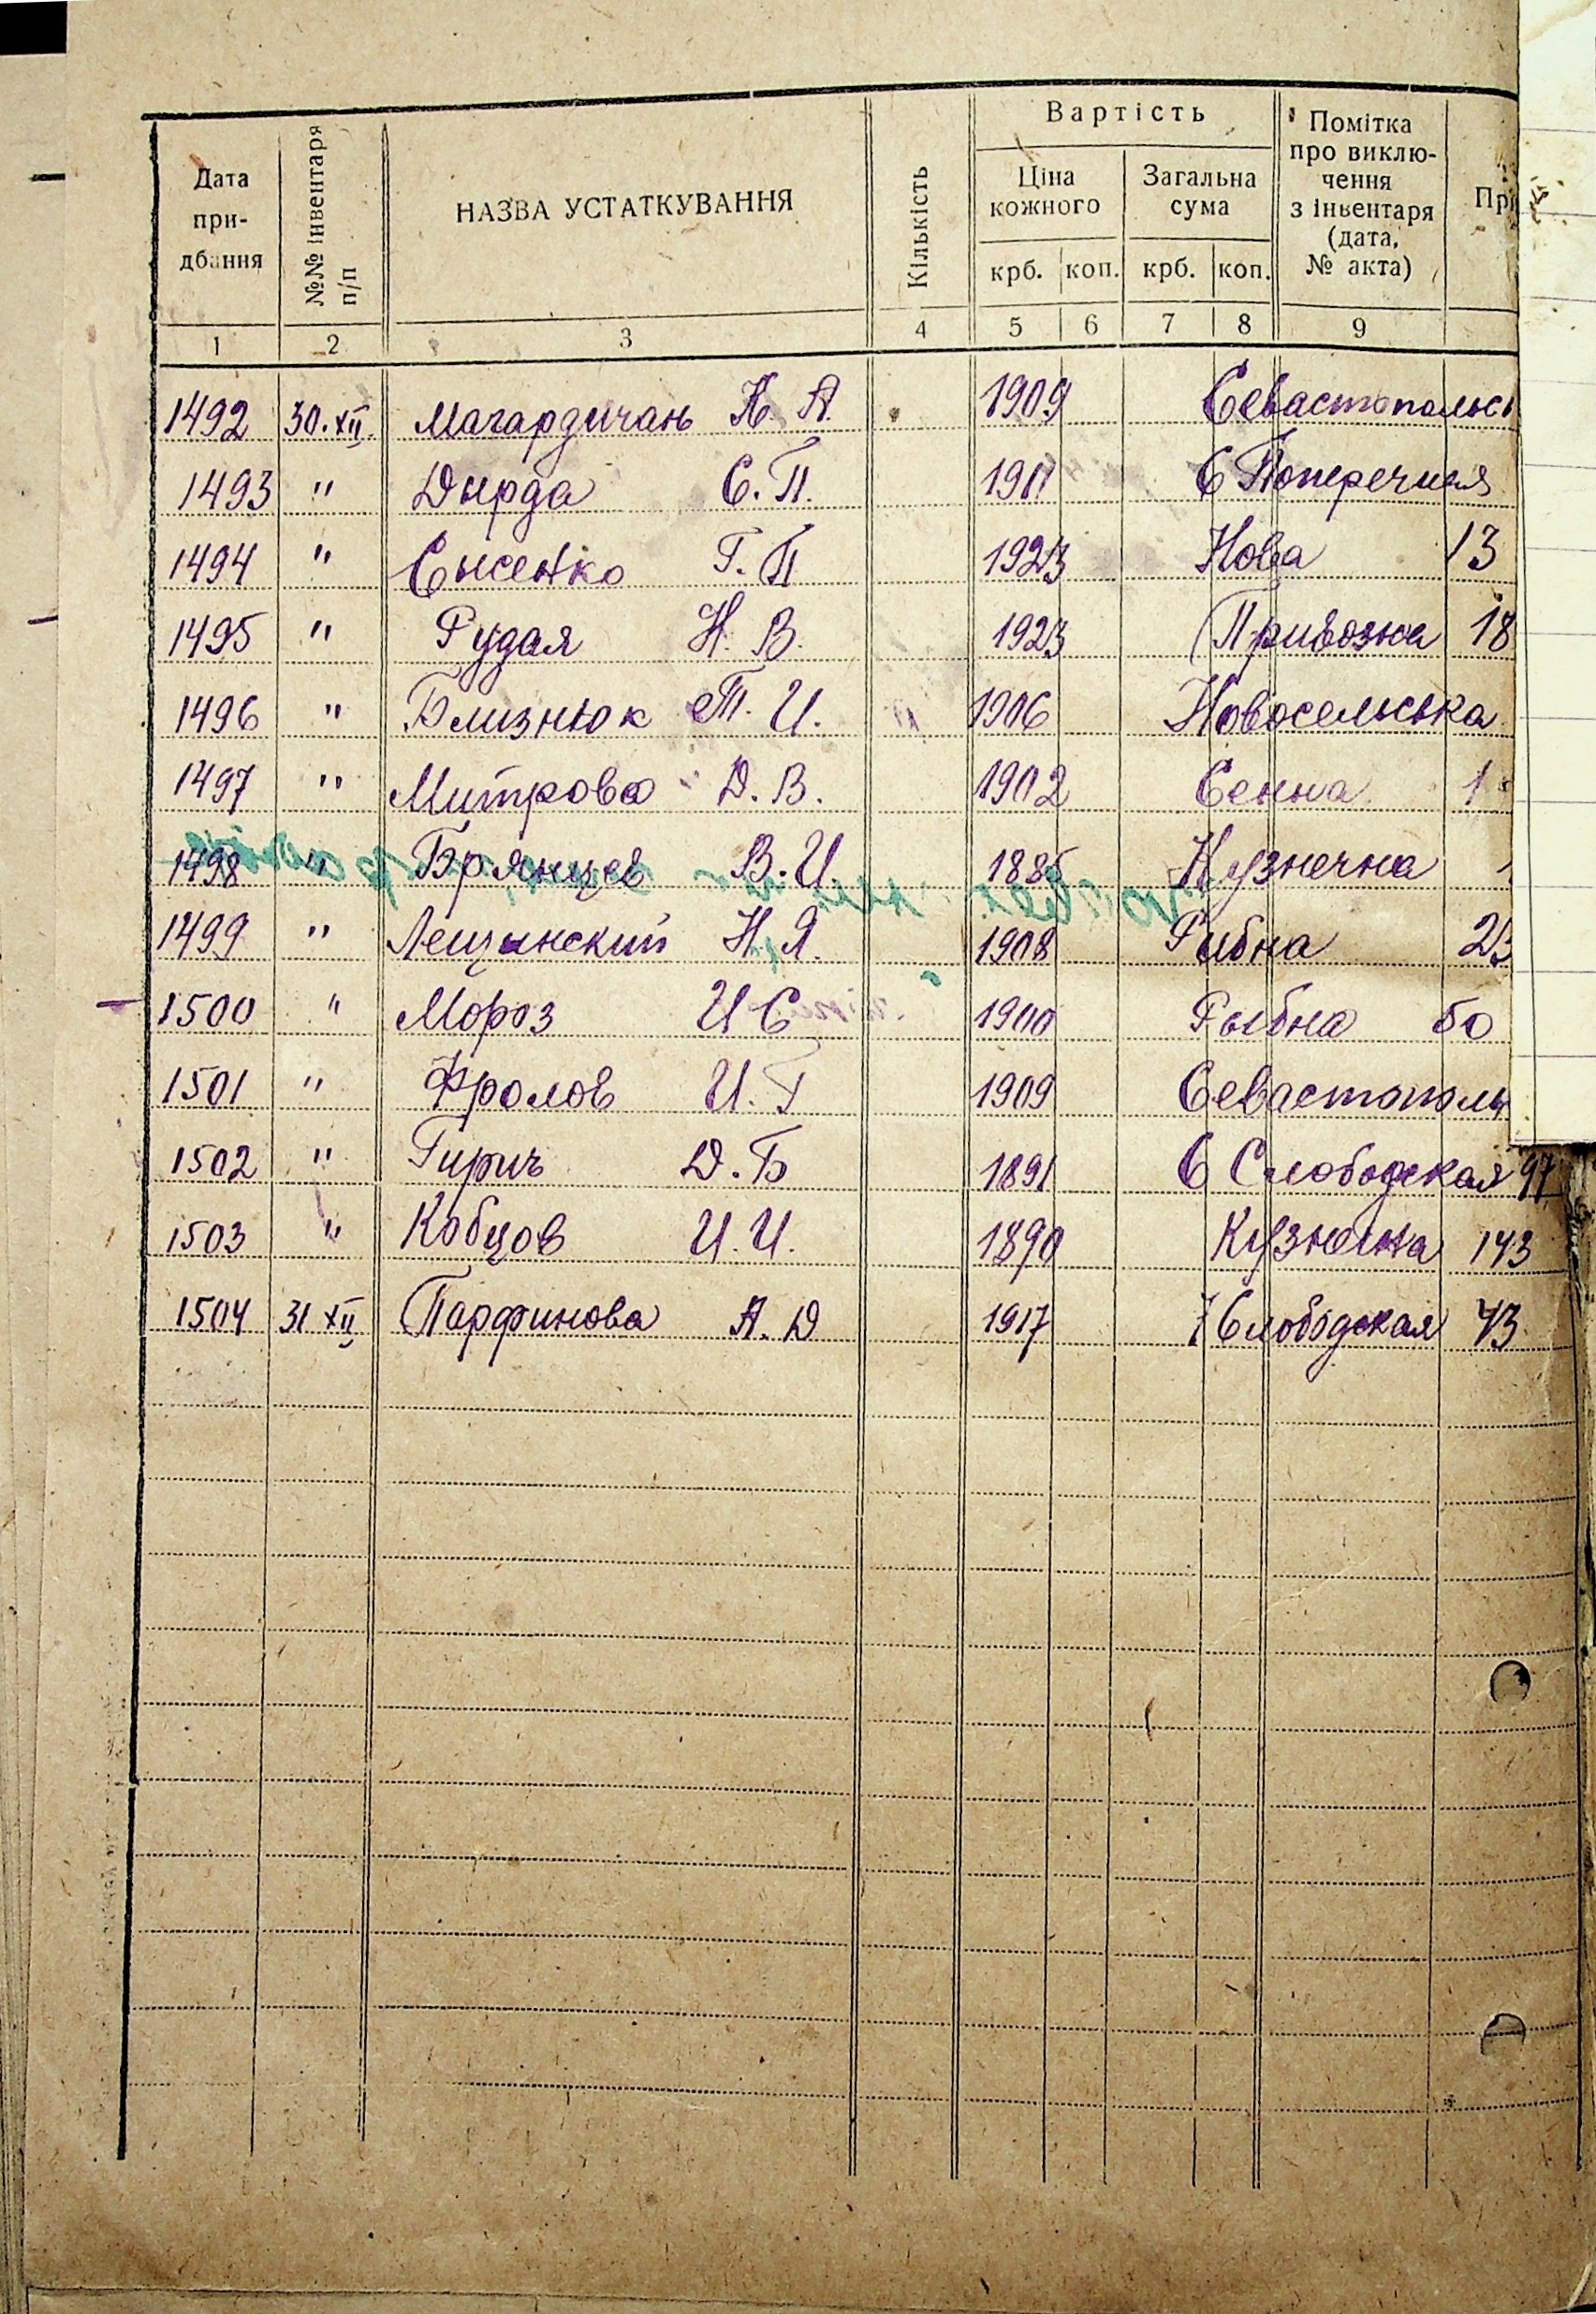 Дата при-дбання
№№ інвентаря п/п
НАЗВА УСТАТКУВАННЯ
Кількість
Вартість
Ціна кожного
Загальна сума
крб. коп. крб. коп.
Помітка про виклю-чення з інвентаря (дата, № акта)
При
1 2 3 4 5 6 7 8 9
1492 30.XII. Магардичань К. А. 1909 Севастопольсь
1493 " Дырда С. П. 1911 С Поперечная
1494 " Сысенко Г. П 1923 Нова 13
1495 " Рудая Н. В. 1923 Привозна 18
1496 " Близнюк Т. И. 1906 Новосельська
1497 " Митрова Д. В. 1902 Сенна 1
1498 " Брянцев В. И. 1885 Кузнечна
1499 " Лещинский Н. Я. 1908 Рибна 23
1500 " Мороз И С 1900 Рыбна 50
1501 " Фролов И. Г 1909 Севастополь
1502 " Гирич Д. Б 1891 С Слободская 97
1503 " Кобцов И. И. 1890 Кузнечна 143
1504 31 XII Парфинова А. Д 1917 Слободская 43